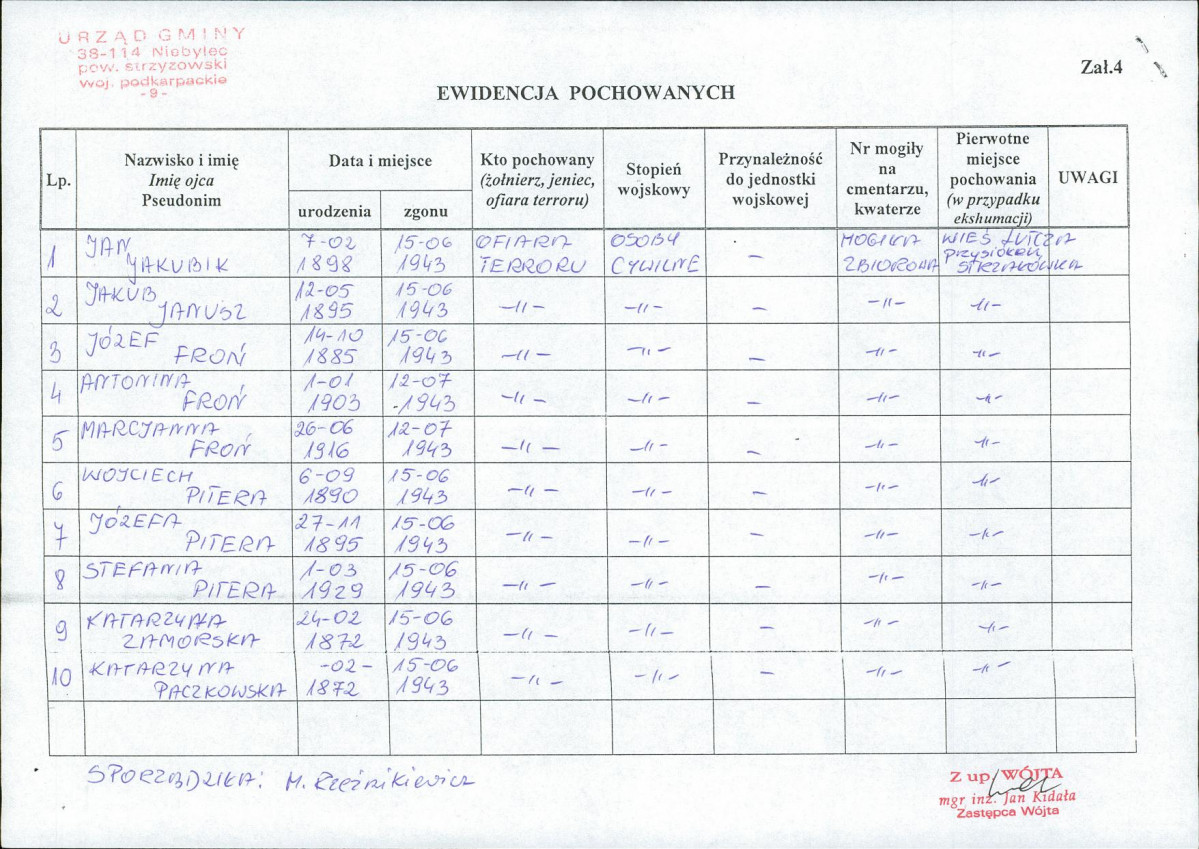 URZĄD GMINY
38-114 Niebylec
pow. strzyżowski
woj. podkarpackie
- 9 -
Zał.4
EWIDENCJA POCHOWANYCH
Lp.
Nazwisko i imię
Imię ojca
Pseudonim
Data i miejsce
urodzenia
zgonu
Kto pochowany
(żołnierz, jeniec,
ofiara terroru)
Stopień
wojskowy
Przynależność
do jednostki
wojskowej
Nr mogiły
na
cmentarzu,
kwaterze
Pierwotne
miejsce
pochowania
(w przypadku
ekshumacji)
UWAGI
1 JAN 7-02 15-06 OFIARA OSOBY MOGIŁA WIEŚ LUTCZA
JAKUBIK 1898 1943 TERRORU CYWILNE – ZBIOROWA przysiółek
STRZAŁÓWKA
2 JAKUB 12-05 15-06
JANUSZ 1895 1943 –"– –"– – –"– –"–
3 JÓZEF 14-10 15-06
FROŃ 1885 1943 –"– –"– – –"– –"–
4 ANTONINA 1-01 12-07
FROŃ 1903 1943 –"– –"– – –"– –"–
5 MARCJANNA 26-06 12-07
FROŃ 1916 1943 –"– –"– – –"– –"–
6 WOJCIECH 6-09 15-06
PITERA 1890 1943 –"– –"– – –"– –"–
7 JÓZEFA 27-11 15-06
PITERA 1895 1943 –"– –"– – –"– –"–
8 STEFANIA 1-03 15-06
PITERA 1929 1943 –"– –"– – –"– –"–
9 KATARZYNA 24-02 15-06
ZAMORSKA 1872 1943 –"– –"– – –"– –"–
10 KATARZYNA -02- 15-06
PACZKOWSKA 1872 1943 –"– –"– – –"– –"–
SPORZĄDZIŁA: M. Rzeźnikiewicz
Z up. WÓJTA
mgr inż. Jan Kidała
Zastępca Wójta